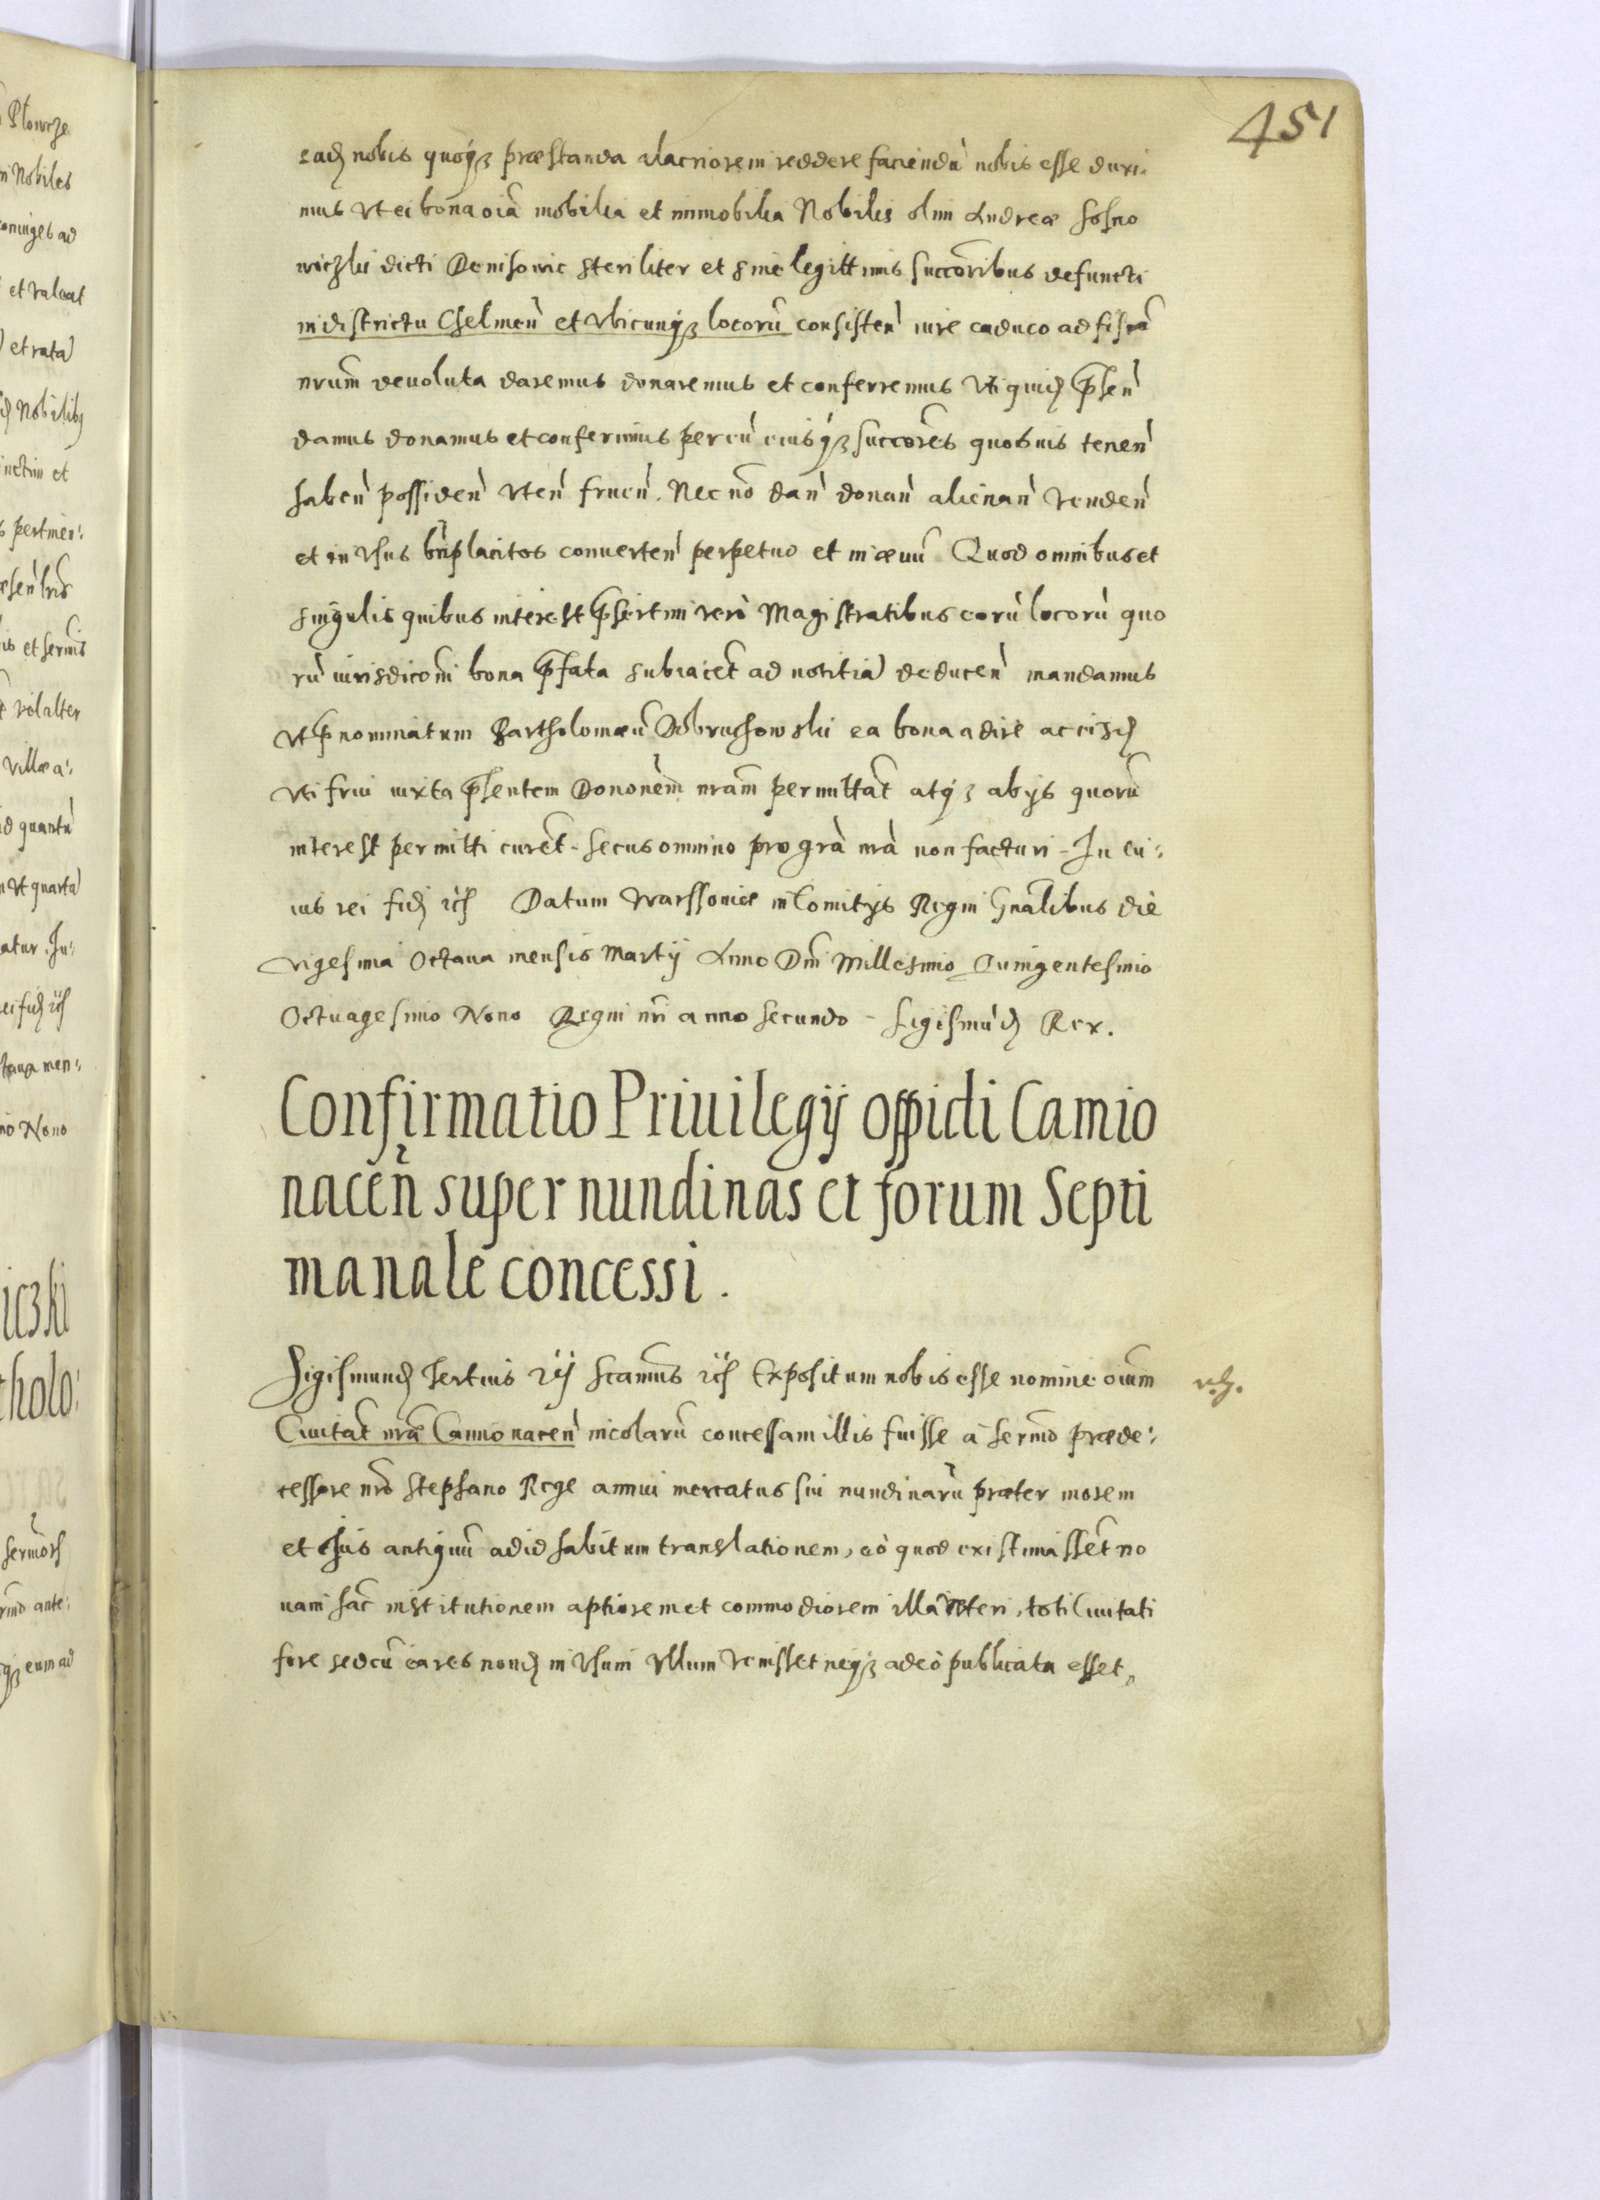 451
eadē nobis quoqꝫ præstanda alacriorem reddere faciendū nobis esse duxi:
mus vt ei bona oīa mobilia et immobilia Nobilis olim Andreæ Sosno
wiczkii dicti Denisowic steriliter et sine legittimis succōribus defuncti
in districtu Chelmeñ et vbicunqꝫ locorū consisteñ iure caduco ad fiscū
nrum deuoluta daremus donaremus et conferremus vti quidē p̄señ
damus donamus et conferimus per eū eiusqꝫ succōres quosuis teneñ
habeñ possideñ vteñ frueñ. Nec nō dañ donañ alienañ vendeñ
et in vsus bn̄placitos conuerteñ perpetuo et in æuū Quod omnibus et
singulis quibus interest p̄sertim verò Magistratibus eorū locorū quo
rū iurisdicōni bona p̄fata subiacēt ad notitiā deduceñ mandamus
vt p̄nominatum Bartholomæū Dobruchowski ea bona adire ac eisdē
vti frui iuxta p̄sentem Donōnem nram permittāt atqꝫ ab ijs quorū
interest permitti curēt. Secus omnino pro gr̄a nrā non facturi. In cu:
ius rei fidē rc̄ Datum Warssouiæ in Comitijs Regni Gn̄alibus die
vigesima Octaua mensis Martij Anno Dn̄i Millesimo Quingentesimo
Octuagesimo Nono Regni nr̄i anno secundo - Sigismūdꝯ Rex.
Confirmatio Priuilegij oppidi Camio
naceñ super nundinas et forum Septi
manale concessi.
Sigismundꝯ Tertius rc̄ Scamus rc̄ Expositum nobis esse nomine oīum
Ciuitāt nrǣ Camionaceñ incolarū concessam illis fuisse à Sermo præde:
cessore nrō Stephano Rege annui mercatus siu nundinarū præter morem
et ius antiquū ad id habitum translationem, eò quod existimassēt no
uam hāc institutionem aptiorem et commodiorem illā veteri, toti Ciuitati
fore sed cū ea res nondū in vsum vllum venisset neqꝫ adeò publicata esset,